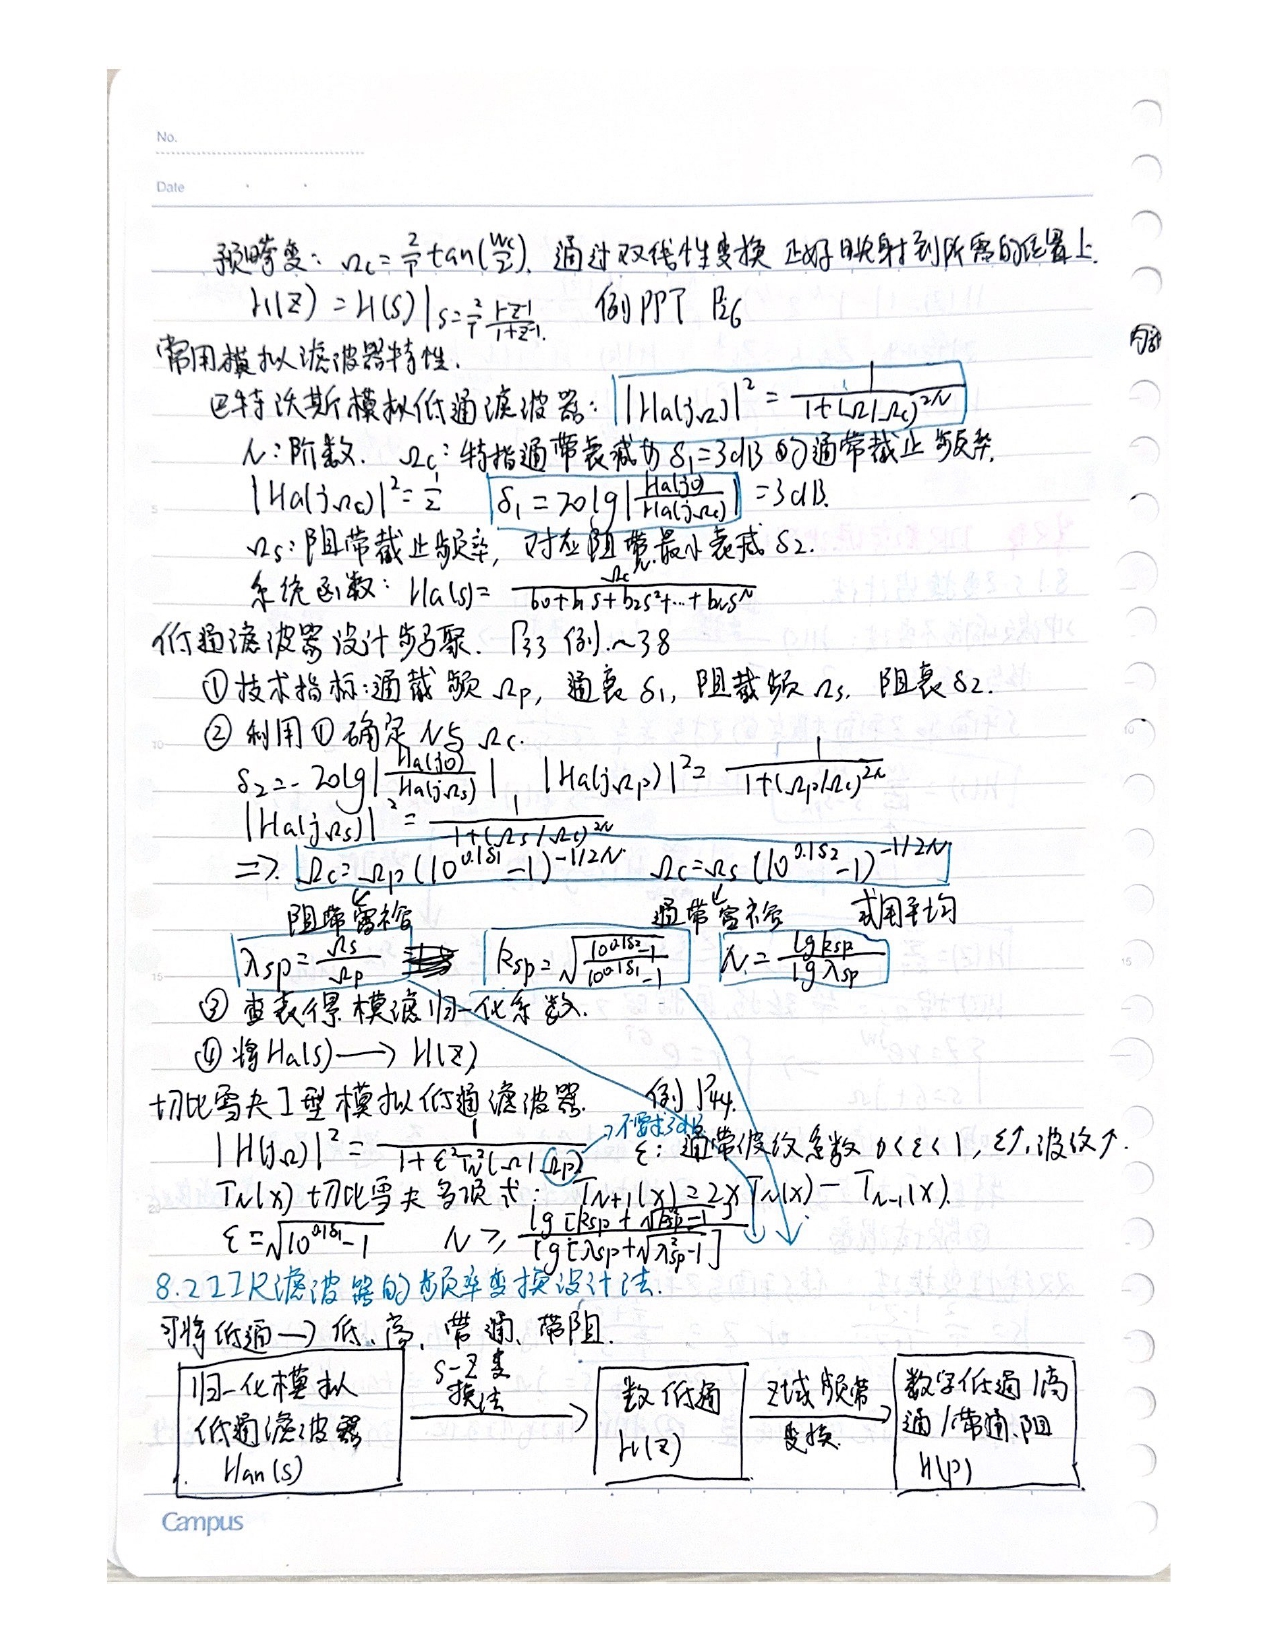 No.
Date
预畸变：Ωc=2/T tan(Wc/2). 通过双线性变换 正好映射到所需的位置上.
H(Z)=H(S)|s=2/T (1-Z-1)/(1+Z-1). 例PPT P26
常用模拟滤波器特性.
巴特沃斯模拟低通滤波器：|Ha(jΩ)|²=1/(1+(Ω/Ωc)^2N)
N：阶数. Ωc：特指通带衰减为δ1=3dB的通带截止频率.
|Ha(jΩc)|²=1/2 δ1=20lg|Ha(j0)/Ha(jΩc)|=3dB.
Ωs：阻带截止频率，对应阻带最小衰减δ2.
系统函数：Ha(s)=Ωc^N/(b0+b1s+b2s²+…+bNs^N)
低通滤波器设计步骤. P33 例.~38
①技术指标：通截频Ωp，通衰δ1，阻截频Ωs，阻衰δ2.
②利用①确定N与Ωc.
δ2=-20lg|Ha(j0)/Ha(jΩs)| |Ha(jΩp)|²=1/(1+(Ωp/Ωc)^2N)
|Ha(jΩs)|²=1/(1+(Ωs/Ωc)^2N)
=> Ωc=Ωp(10^0.1δ1-1)^-1/2N Ωc=Ωs(10^0.1δ2-1)^-1/2N
阻带富裕 通带富裕 或用平均
λsp=Ωs/Ωp ksp=√((10^0.1δ2-1)/(10^0.1δ1-1)) N=lgksp/lgλsp
③查表得模滤归一化系数.
④将Ha(s)→H(Z)
切比雪夫I型模拟低通滤波器. 例P44.
→不要求3dB
|H(jΩ)|²=1/(1+ε²TN²(Ω/Ωp)) ε：通带波纹系数 0<ε<1，ε↑，波纹↑.
TN(x)切比雪夫多项式：TN+1(x)=2xTN(x)-TN-1(x).
ε=√(10^0.1δ1-1) N≥lg[ksp+√(k²sp-1)]/lg[λsp+√(λ²sp-1)]
8.2 IIR滤波器的频率变换设计法.
可将低通→低、高、带通、带阻.
归一化模拟低通滤波器 Han(s)
S-Z变换法
数低通 H(Z)
Z域频带变换.
数字低通/高通/带通.阻 H(P)
Campus